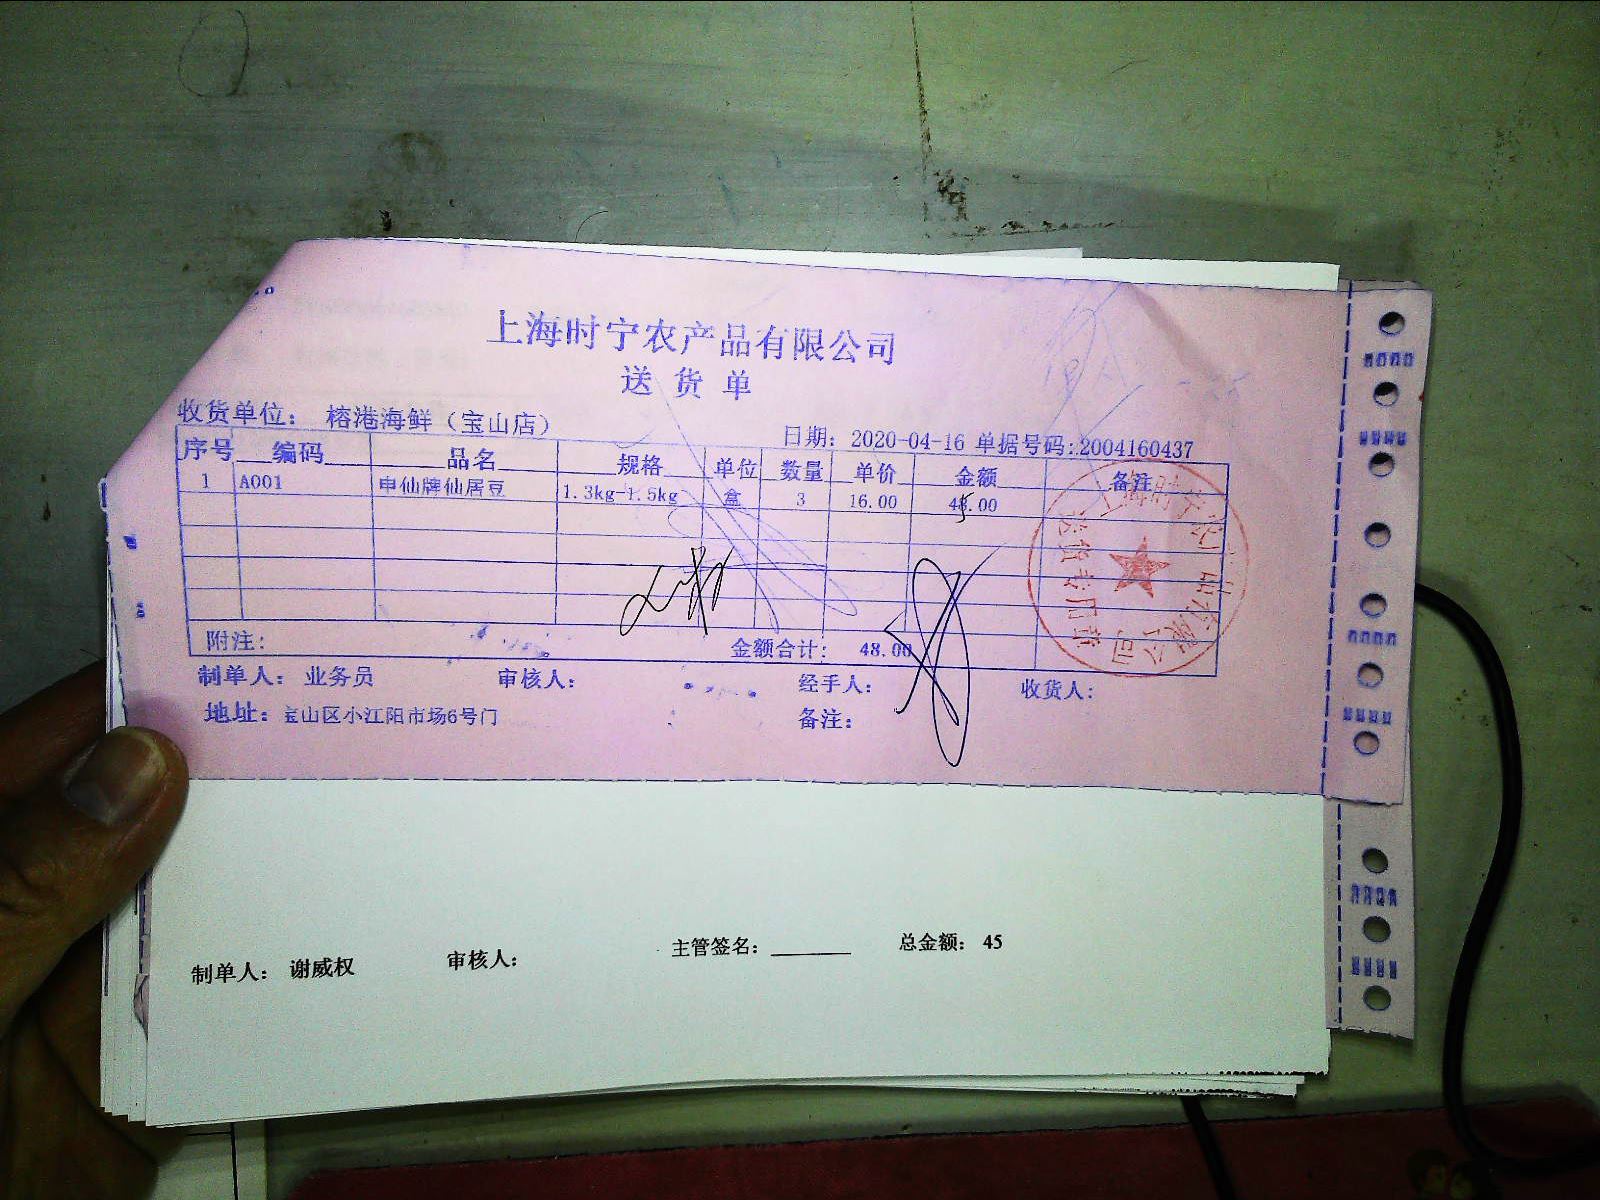 上海时宁农产品有限公司
送货单
收货单位： 榕港海鲜（宝山店）
日期： 2020-04-16 单据号码:2004160437
序号 编码 品名 规格 单位 数量 单价 金额 备注
1 A001 申仙牌仙居豆 1.3kg-1.5kg 盒 3 16.00 45.00
附注： 金额合计： 48.00
制单人： 业务员 审核人： 经手人： 收货人：
地址：宝山区小江阳市场6号门 备注：
制单人： 谢威权 审核人： 主管签名： 总金额： 45